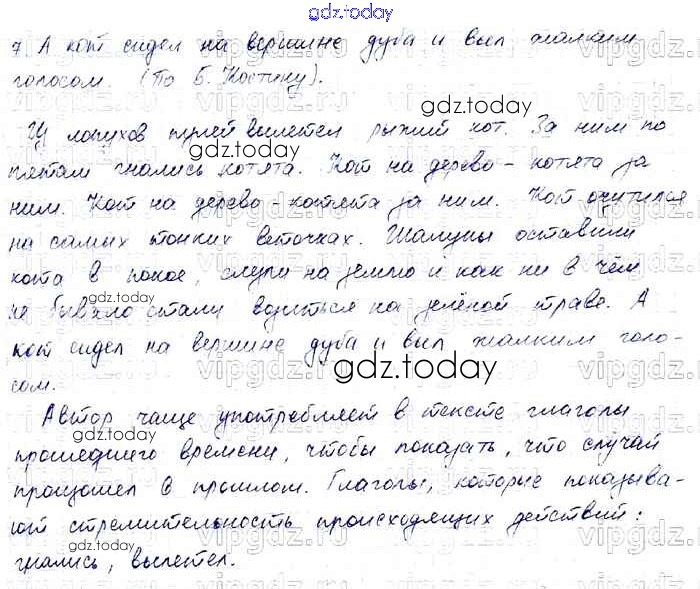 gdz.today
7. А кот сидел на вершине дуба и выл жалким
голосом. (По Б. Костину).
gdz.today
Из лопухов пулей вылетел рыжий кот. За ним по
gdz.today
пятам гнались котята. Кот на дерево - котята за
ним. Кот на дерево - котята за ним. Кот очутился
на самых тонких веточках. Шалуны оставили
кота в покое, слезли на землю и как ни в чём
gdz.today
не бывало стали возиться на зелёной траве. А
кот сидел на вершине дуба и выл жалким голо-
gdz.today
сом.
Автор чаще употребляет в тексте глаголы
gdz.today
прошедшего времени, чтобы показать, что случай
произошел в прошлом. Глаголы, которые показыва-
ют стремительность происходящих действий:
gdz.today
гнались, вылетел.